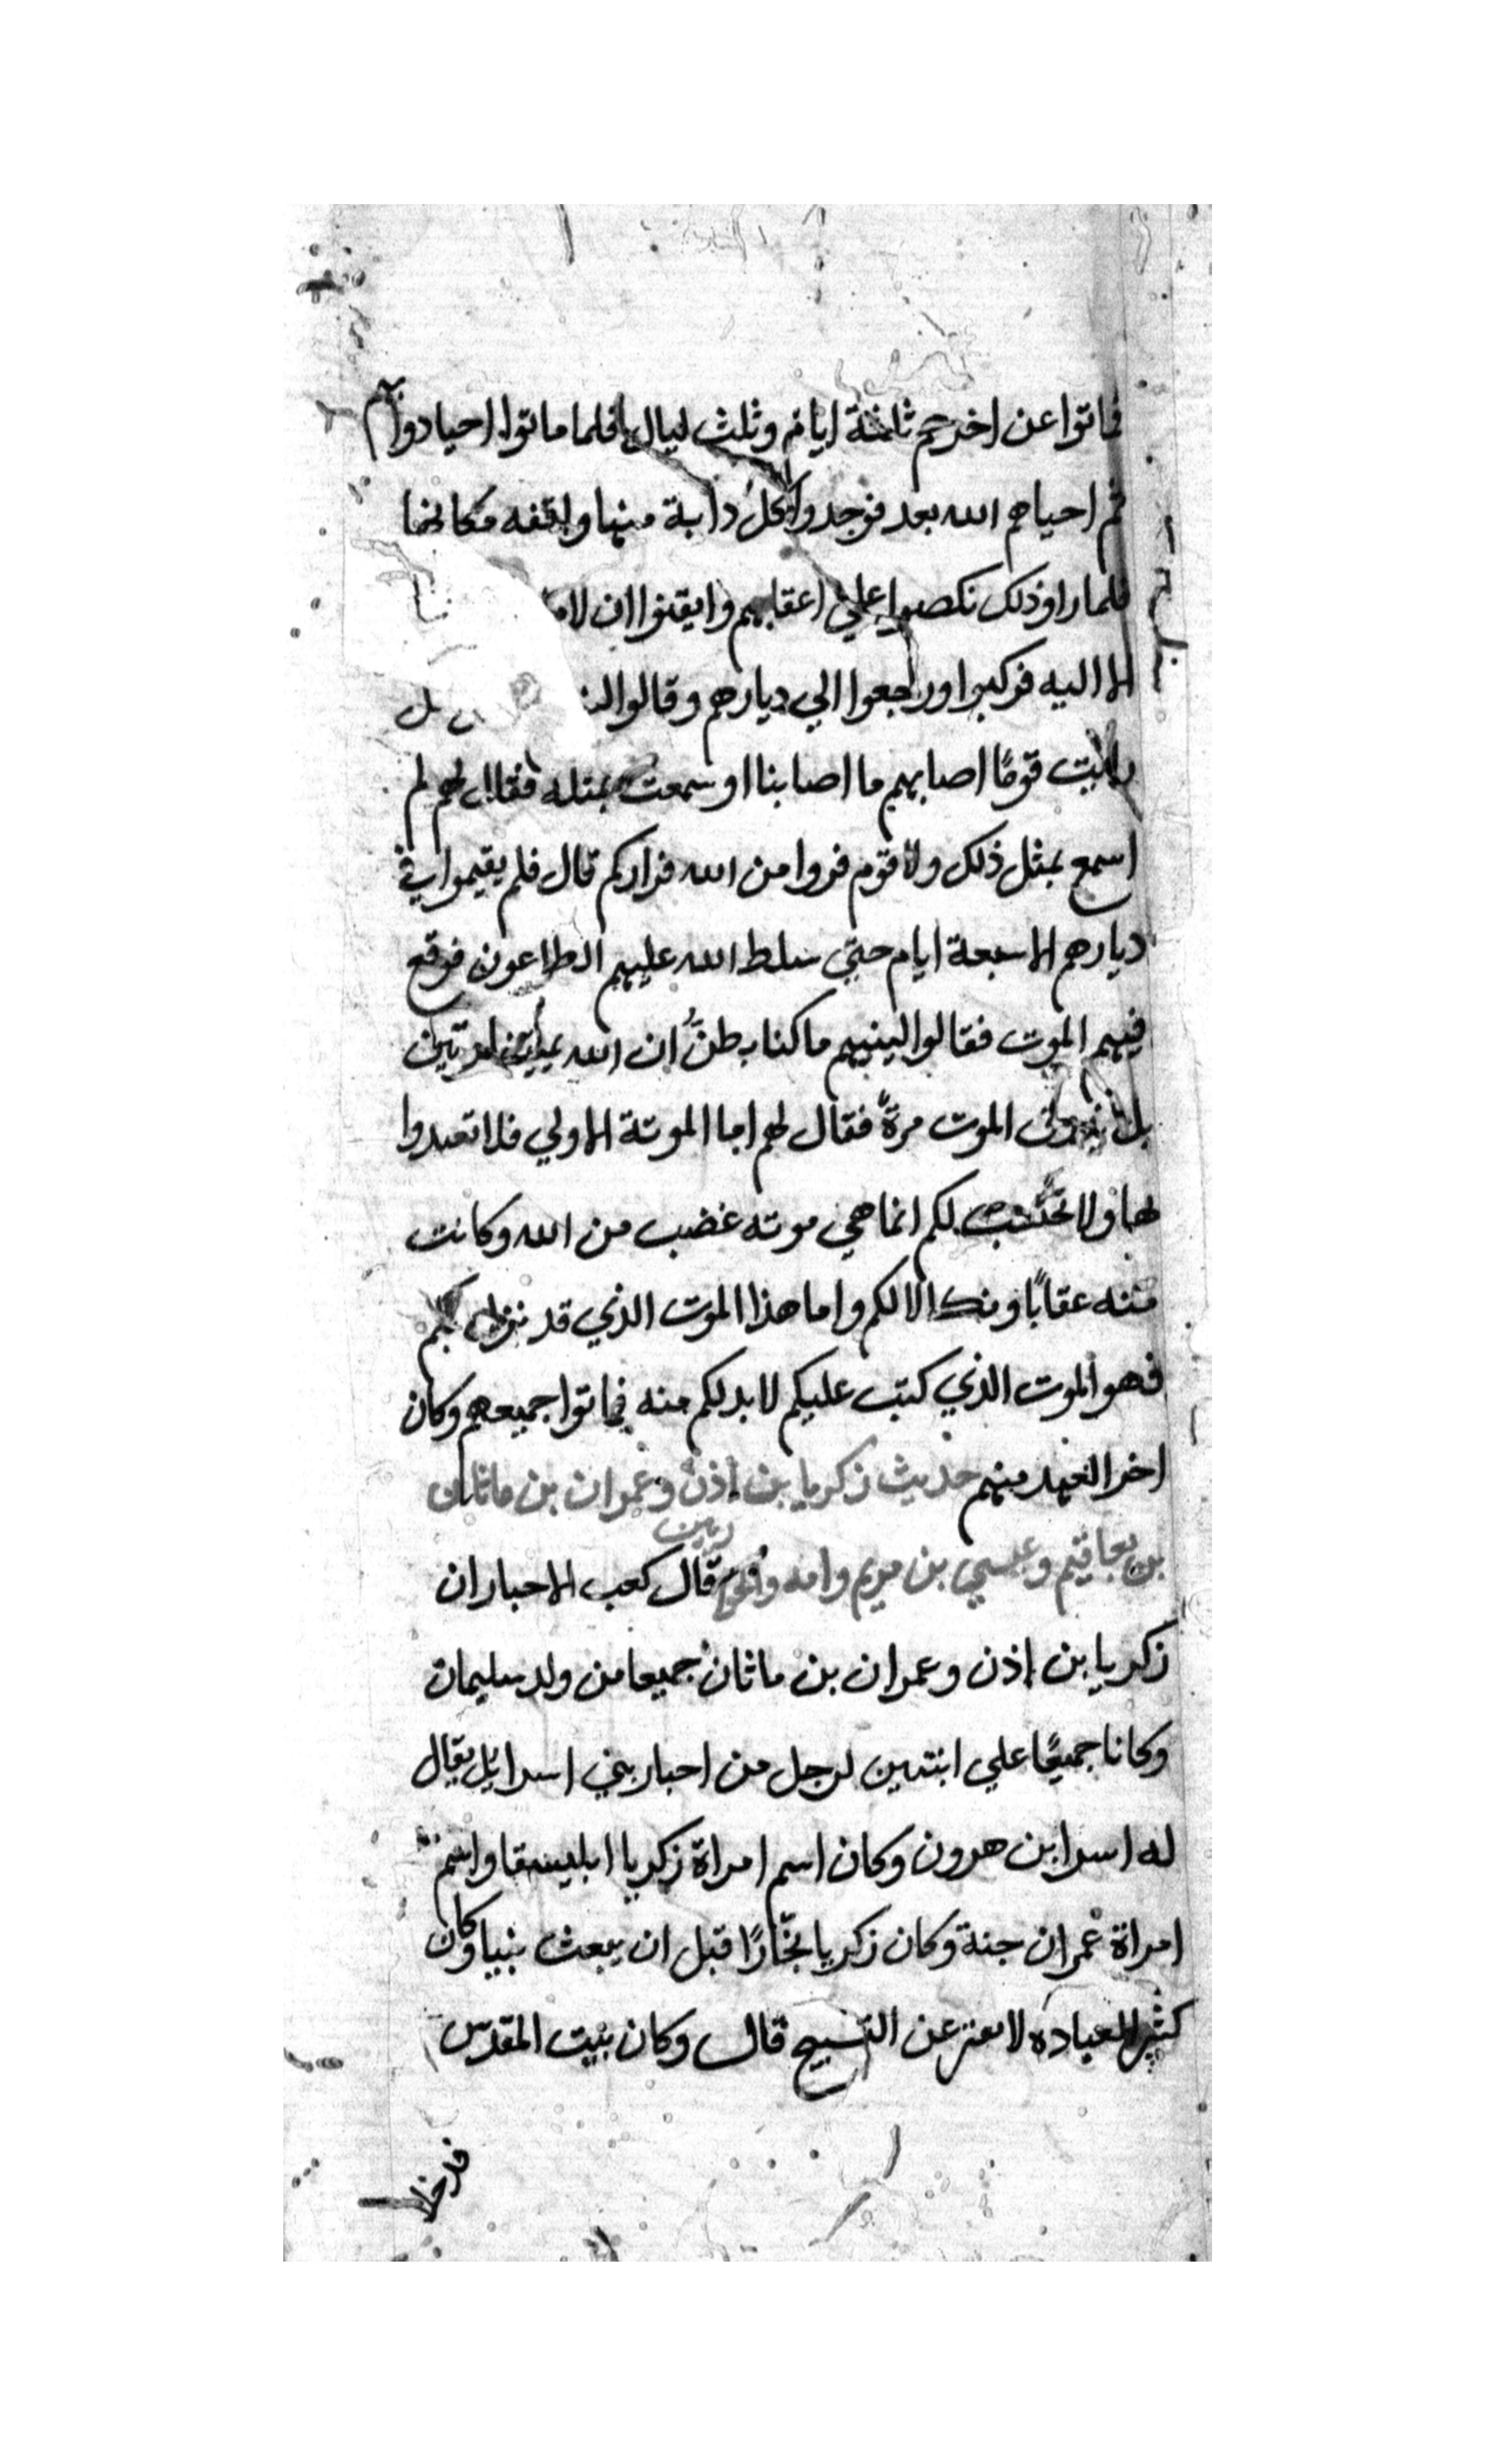 فماتوا عن اخرهم ثلثة ايام وثلث ليال فلما ماتوا احيا دوابهم
ثم احياهم الله بعد فوجدوا كل دابة منها واقفه مكانها
فلما راو ذلك نكصوا علي اعقابهم وايقنوا ان لا
الا اليه فركبوا ورجعوا الي ديارهم وقالوا هل
رايت قومًا اصابهم ما اصابنا او سمعت بمثله فقال لهم لم
اسمع بمثل ذلك ولا قوم فروا من الله فراركم قال فلم يقيموا في
ديارهم الا سبعة ايام حتي سلط الله عليهم الطاعون فوقع
فيهم الموت فقالوا لنبيهم ما كنا نظنُّ ان الله يميتنا مرتين
بل الموت مرةً فقال لهم اما الموتة الاولي فلا تعبدوا
بها ولا تحتسب لكم انما هي موته غضب من الله وكانت
منه عقابًا ونكالا لكم واما هذا الموت الذي قد نزل بكم
فهو الموت الذي كتب عليكم لا بد لكم منه فماتوا جميعهم وكان
اخر العهد منهم حديث زكريا بن اذن وعمران بن ماثان
بن يعاقيم وعيسي بن مريم وامه قال كعب الاحبار ان
زكريا بن اذن وعمران بن ماثان جميعا من ولد سليمان
وكانا جميعًا علي ابنتين لرجل من احبار بني اسرايل يقال
له اسرا بن هرون وكان اسم امراة زكريا ابليسقا واسم
امراة عمران حنة وكان زكريا نجّارًا قبل ان يبعث نبيا وكان
كثير العباده لا يفتر عن التسبيح قال وكان بيت المقدس